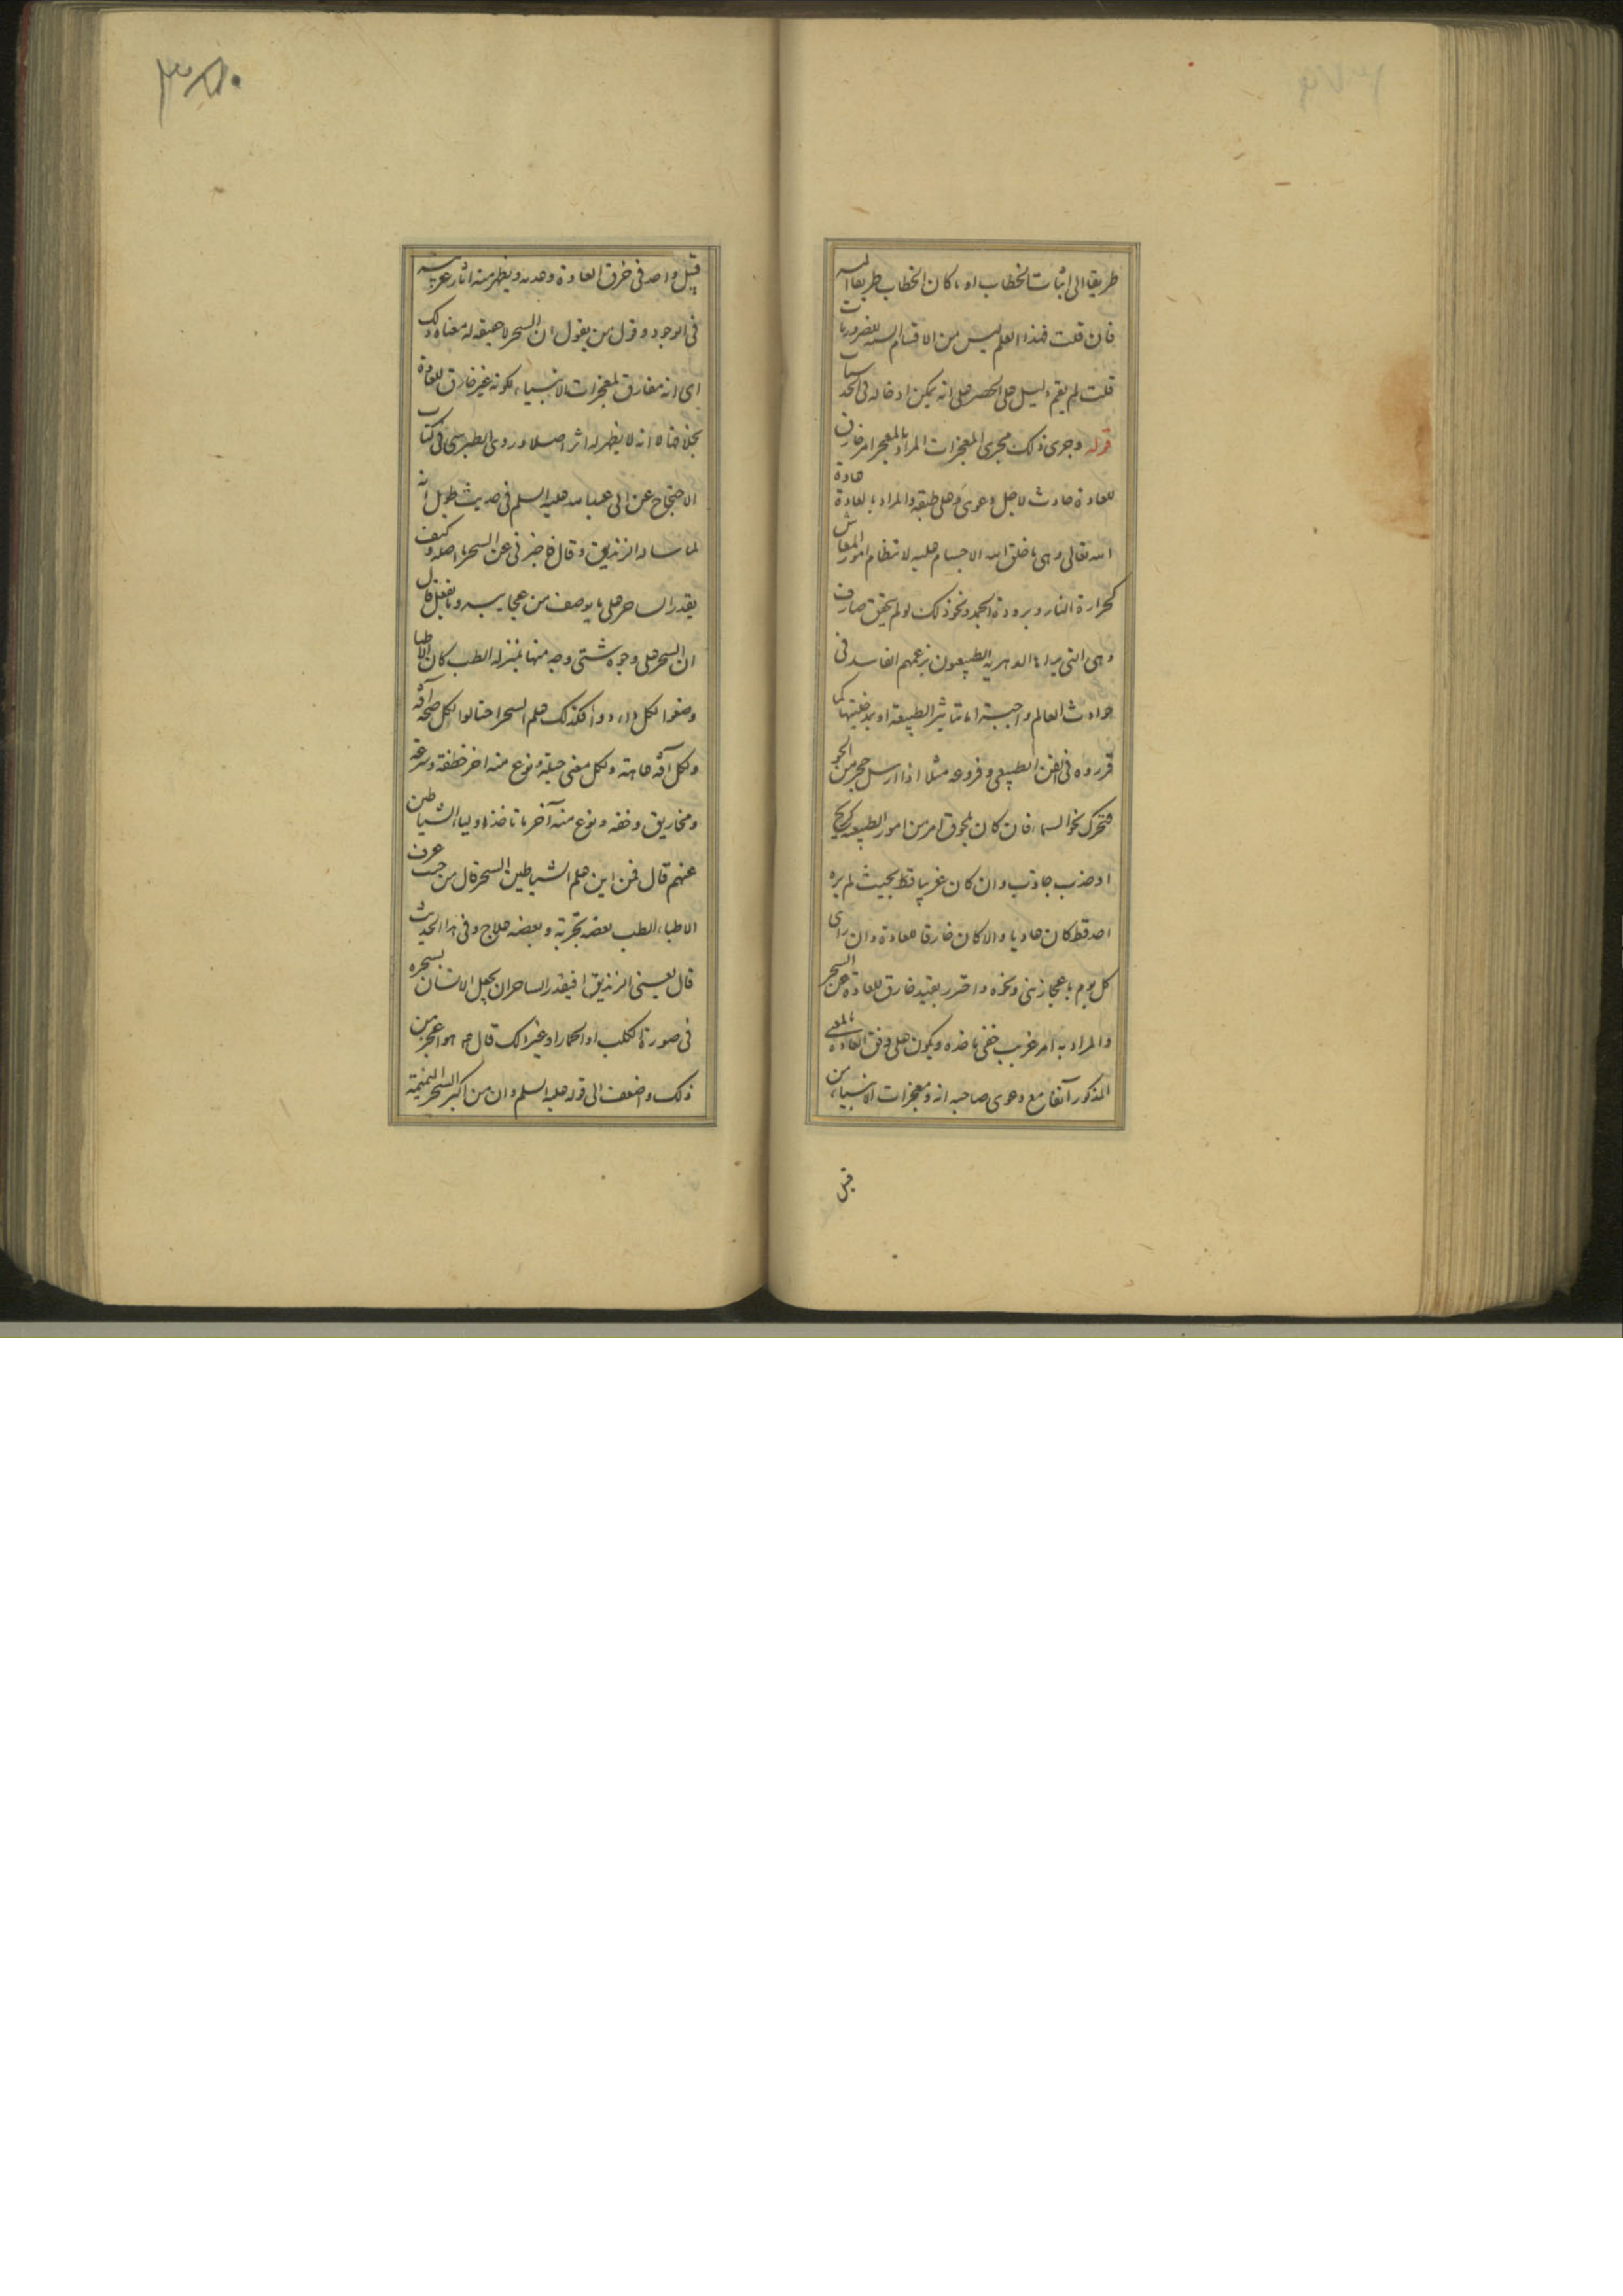 طریقا الی اثبات الخطاب او ما کان الخطاب طریقا الیه
فان قلت فهذا العلم لیس من الاقسام السته للضروریات
قلت لم یقم دلیل علی الحصر علی انه یمکن ادخاله فی الحدسیات
قوله وجری ذلک مجری المعجزات المراد بالمعجز امر خارق
للعادة حادث لاجل دعوی وعلی طبقه والمراد بالعادة عادة
الله تعالی وهی ما خلق الله الاجسام علیه لانتظام امور المعاش
کحرارة النار وبرودة الجمد ونحو ذلک لو لم یتحقق صارف
وهی التی یراها الدهریه الطبیعون بزعمهم الفاسد فی
حوادث العالم واجبة اما بتاثیر الطبیعة او بمدخلیتها کما
قرروه فی الفن الطبیعی وفروعه مثلا اذا ارسل حجر من الجو
فتحرک نحو السماء فان کان للحوق امر من امور الطبیعه کریح
او جذب جاذب وان کان غریبا قط بحیث لم یره
احد قط کان عادیا والا کان خارقا للعادة وان رای
کل یوم باعجاز نبی ونحوه واحترز بقید خارق للعادة عن السحر
والمراد به امر غریب خفی ماخذه ویکون علی وفق العادة بالمعنی
المذکور آنفا مع دعوی صاحبه انه ومعجزات الانبیاء من
قبل
۳۸۰
قبیل واحد فی خرق العادة وهدمه ویظهر منه اثار غریبة
فی الوجود وقول من یقول ان السحر لا حقیقه له معناه ذلک
ای انه مفارق لمعجزات الانبیاء لکونه غیر خارق للعادة
بخلافها لا انه لا یظهر له اثر اصلا وروی الطبرسی فی کتاب
الاحتجاج عن ابی عبدالله علیه السلم فی حدیث طویل انه
لما ساله الزندیق وقال فاخبرنی عن السحر ما اصله وکیف
یقدر الساحر علی ما یوصف من عجایبه وما یفعل قال
ان السحر علی وجوه شتی وجه منها بمنزله الطب کما ان الاطباء
وضعوا لکل داء دواء فکذلک علم السحر احتالوا لکل صحة آفة
ولکل آفة عاهة ولکل معنی حیلة ونوع منه اخر خطفة وسرعة
ومخاریق وخفه ونوع منه آخر ما تاخذه اولیاء الشیاطین
عنهم قال فمن این علم الشیاطین السحر قال من حیث عرف
الاطباء الطب بعضه تجربة وبعضه علاج وفی هذا الحدیث
قال یعنی الزندیق افیقدر الساحر ان یجعل الانسان بسحره
فی صورة الکلب او الحمار او غیر ذلک قال ع هو اعجز من
ذلک واضعف الی قوله علیه السلم وان من اکبر السحر النمیمة